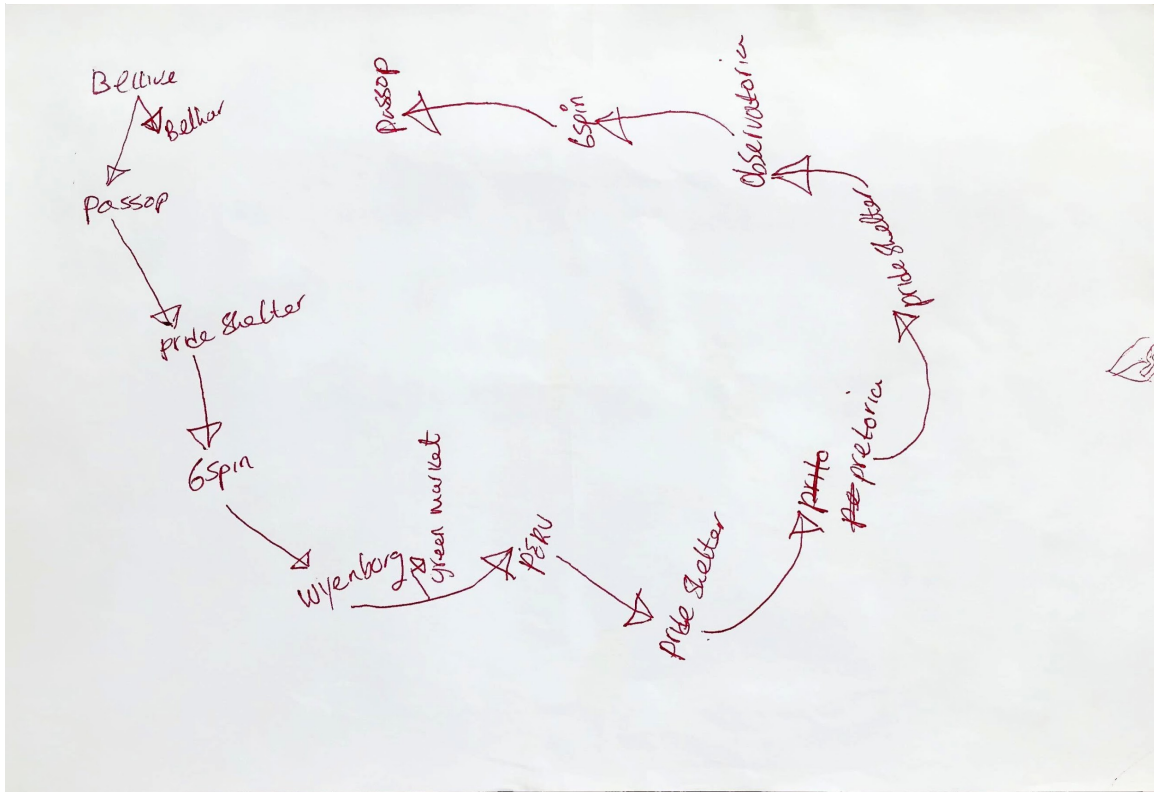 Bellive
Belhar
Passop
pride Shelter
6Spin
Wyenborg
green market
PERU
pride Shelter
prito
pe pretoria
pride Shelter
Observatoria
6spin
passop